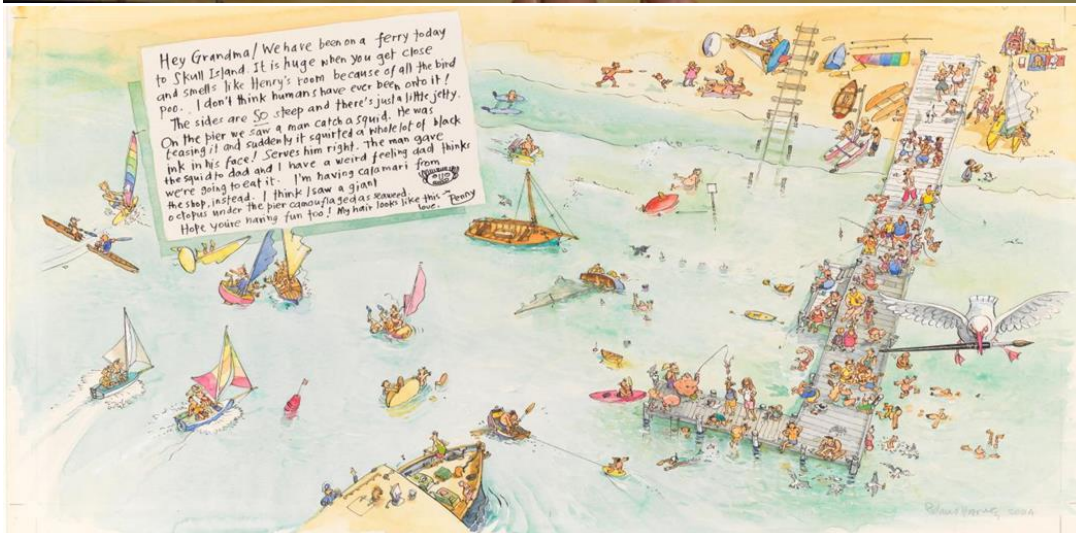 Hey Grandma! We have been on a ferry today
to Skull Island. It is huge when you get close
and smells like Henry's room because of all the bird
poo. I don't think humans have ever been onto it!
The sides are SO steep and there's just a little jetty.
On the pier we saw a man catch a squid. He was
teasing it and suddenly it squirted a whole lot of black
ink in his face! Serves him right. The man gave
the squid to dad and I have a weird feeling dad thinks
we're going to eat it. I'm having calamari from
the shop, instead. I think I saw a giant
octopus under the pier camouflaged as seaweed.
Hope you're having fun too! My hair looks like this
love.
Penny
2004